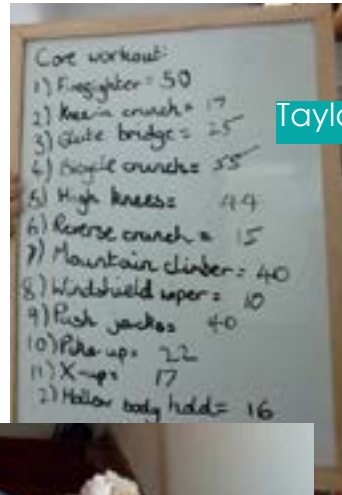 Core workout:
1) Firefighter = 50
2) Knee in crunch = 17
3) Glute bridge = 25
Taylo
4) Bicycle crunch = 55
5) High knees = 44
6) Reverse crunch = 15
7) Mountain climber = 40
8) Windshield wiper = 10
9) Push jacks = 40
10) Pike-up = 22
11) X-up = 17
2) Hollow body hold = 16